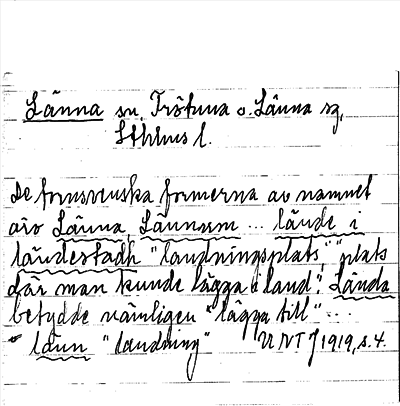 Länna sn. Frötuna o. Länna sg,
Sthlms l.
De fornsvenska formerna av namnet
äro Länna, Lännum ... lände i
ländestadh "landningsplats", "plats
där man kunde lägga i land". Lända
betydde nämligen "lägga till" ...
länn "landning" UNT J 1919, s. 4.